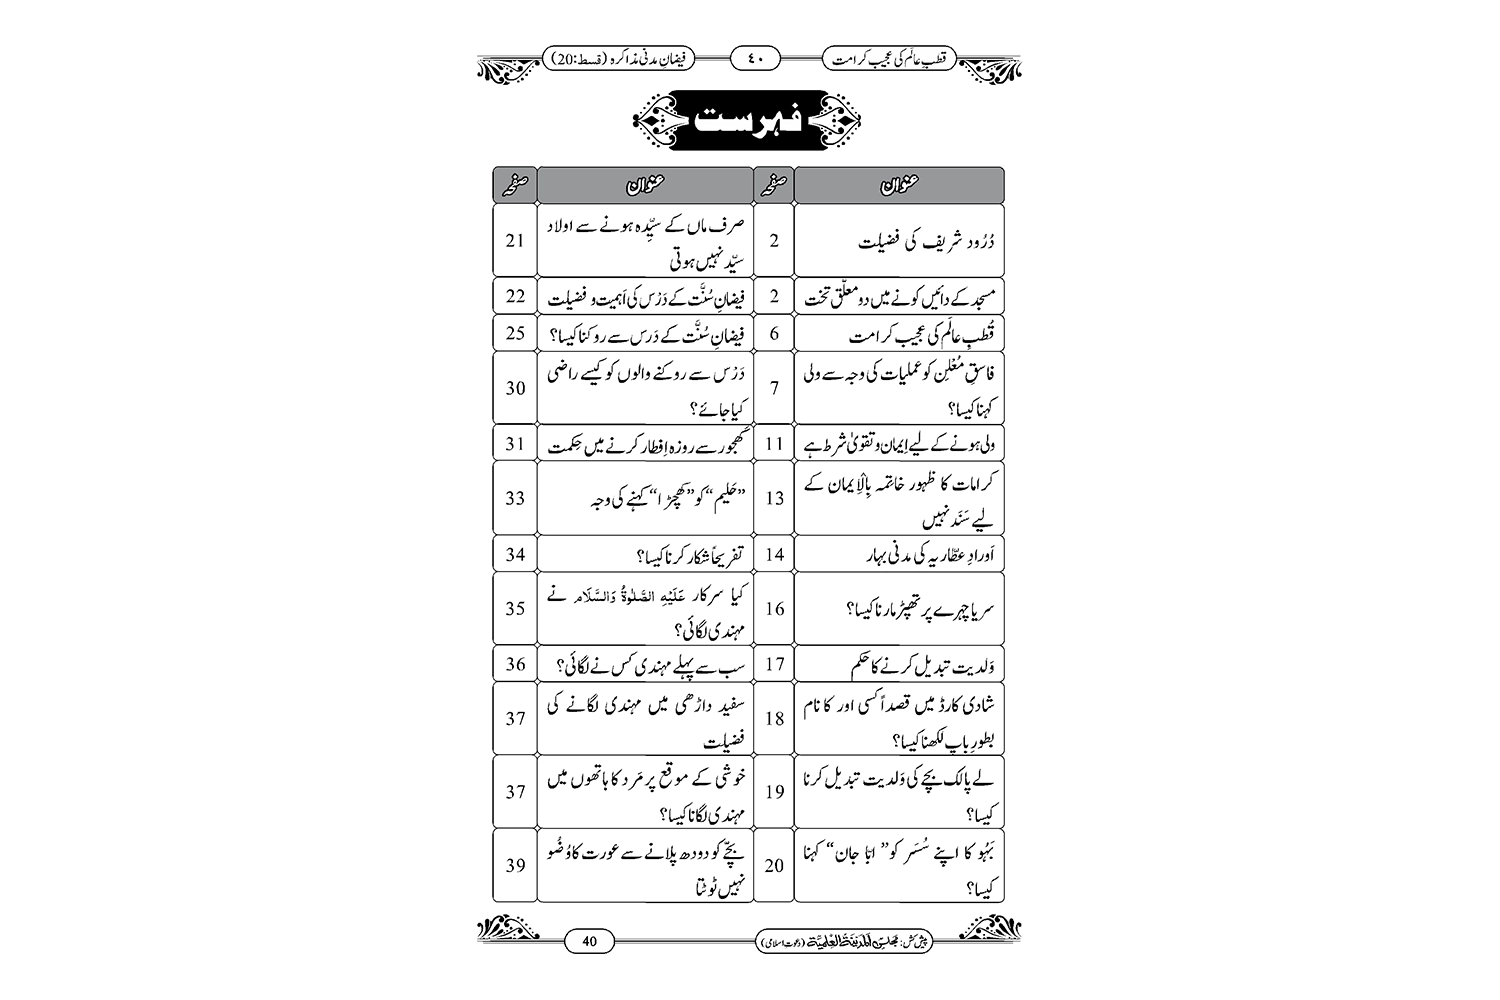 قطبِ عالَم کی عجیب کرامت
٤٠
فیضانِ مدنی مذاکرہ (قسط:20)
فہرست
عنوان صفحہ عنوان صفحہ
دُرُود شریف کی فضیلت 2
صرف ماں کے سیِّدہ ہونے سے اولاد
سیّد نہیں ہوتی 21
مسجد کے دائیں کونے میں دو معلَّق تخت 2
فیضانِ سُنَّت کے دَرْس کی اَہمیت و فضیلت 22
قُطبِ عالَم کی عجیب کرامت 6
فیضانِ سُنَّت کے دَرس سے روکنا کیسا؟ 25
فاسقِ مُعْلِن کو عملیات کی وجہ سے ولی
کہنا کیسا؟ 7
دَرْس سے روکنے والوں کو کیسے راضی
کیا جائے؟ 30
ولی ہونے کے لیے اِیمان و تقویٰ شرط ہے 11
کَھجور سے روزہ اِفطار کرنے میں حِکمت 31
کرامات کا ظہور خاتمہ بِالْاِیمان کے
لیے سَنَد نہیں 13
”حَلیم“ کو ”کھچڑا“ کہنے کی وجہ 33
اَورادِ عطّاریہ کی مدنی بہار 14
تفریحاً شکار کرنا کیسا؟ 34
سر یا چہرے پر تھپڑ مارنا کیسا؟ 16
کیا سرکار عَلَیْہِ الصَّلٰوۃُ وَالسَّلَام نے
مہندی لگائی؟ 35
وَلدیت تبدیل کرنے کا حَکم 17
سب سے پہلے مہندی کس نے لگائی؟ 36
شادی کارڈ میں قصداً کسی اور کا نام
بطورِ باپ لکھنا کیسا؟ 18
سفید داڑھی میں مہندی لگانے کی
فضیلت 37
لے پالک بچے کی وَلدیت تبدیل کرنا
کیسا؟ 19
خوشی کے موقع پر مَرد کا ہاتھوں میں
مہندی لگانا کیسا؟ 37
بَہُو کا اپنے سُسَر کو ”ابّا جان“ کہنا
کیسا؟ 20
بچّے کو دودھ پلانے سے عورت کا وُضُو
نہیں ٹوٹتا 39
پیش کش: مجلس اَلْمَدِیْنَۃُ الْعِلْمِیَّۃ (دعوتِ اسلامی)
40